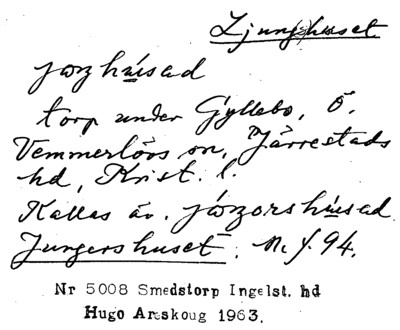 Ljunghuset
jøɲhúsad
torp under Gyllebo, Ö.
Vemmerlövs sn, Järrestads
hd, Krist. l.
Kallas äv. jøɲorshúsad
Jungershuset. M. f. 94.
Nr 5008 Smedstorp Ingelst. hd
Hugo Areskoug 1963.